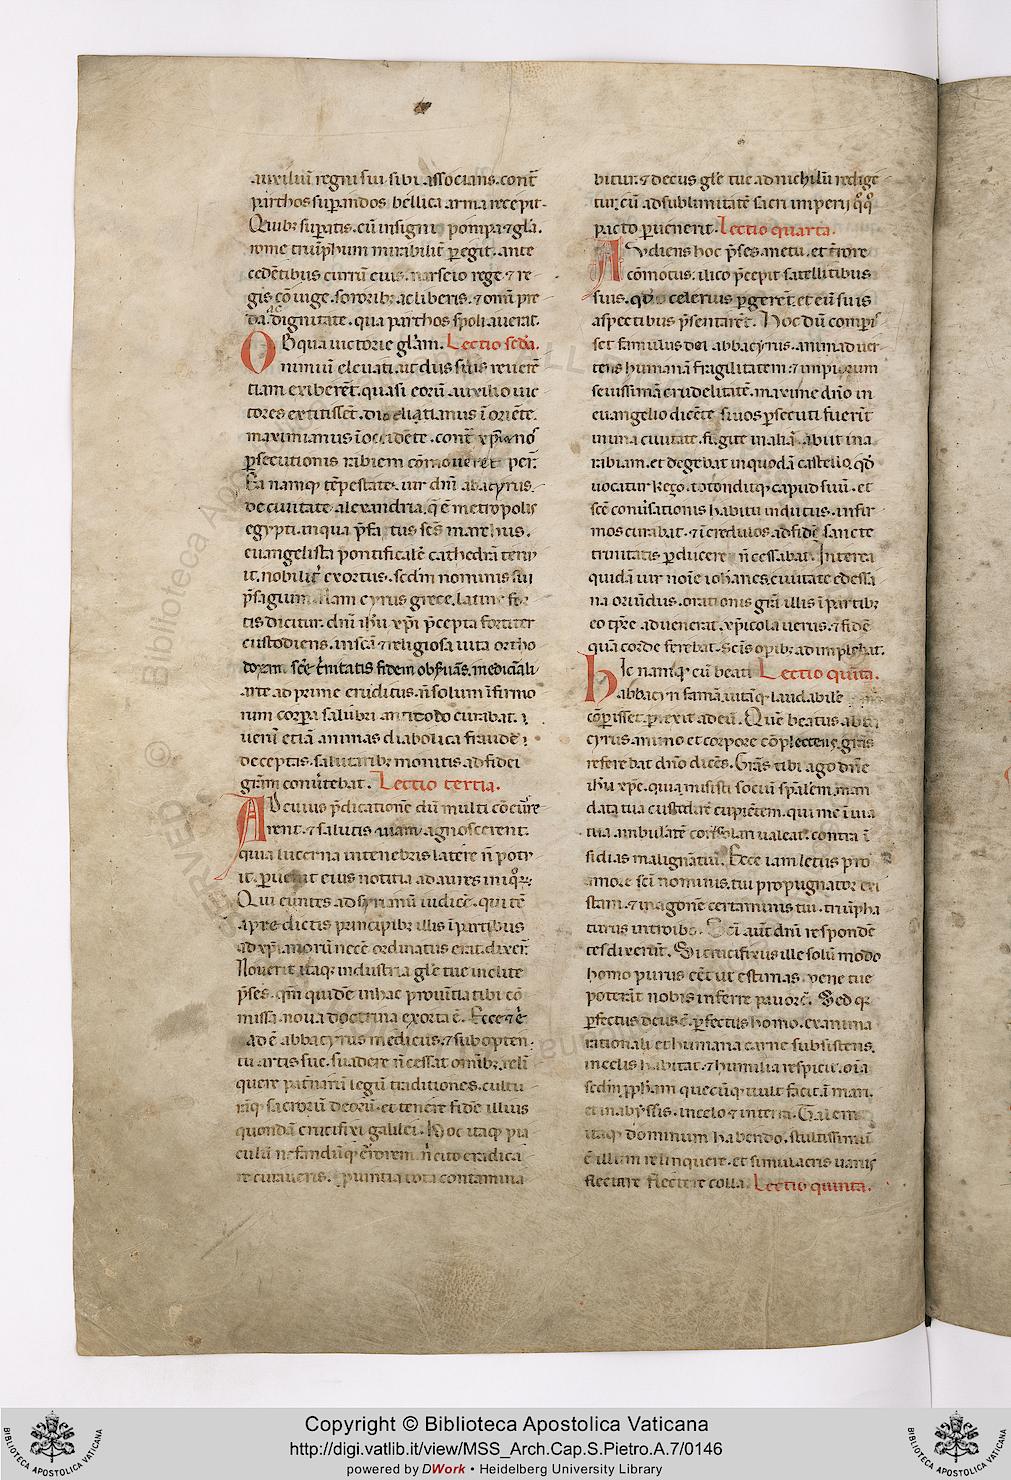 auxiliū regni sui sibi associans. cont̄
parthos suꝑandos bellica arma recepit.
Quibꝰ suꝑatis. cū insigni pompa ⁊ gl̄a.
rome triūphum mirabilit̄ ꝑegit. ante
cedētibus currū eius. narseio rege ⁊ re
gis cōiuge. sororibꝰ. ac liberis. ⁊ omī pre
da. ac dignitate. qua parthos spoliaverat.
OB qua uictorie gl̄am. Lectio scd̄a.
nimiū eleuati. ut diis suis reuerē
tiam exiberēt. quasi eorū auxilio uic
tores extitissēt. dioclitianus ī oriēte.
maximianus ī occidēte. cont̄ xp̄ianoꝝ
ꝑsecutionis rabiem cōmouerēt
Ea namqꝫ tēpestate. uir dn̄i abacyrus.
de ciuitate alexandria. q̄ ē metropolis
egypti. in qua p̄fatus sc̄s marchus.
euangelista pontificalē cathedrā tenu
it. nobilit̄ exortus. sed in nominis sui
p̄sagium. Nam cyrus grece. latine for
tis dicitur. dn̄i ih̄u xp̄i p̄cepta fortiter
custodiens. in sc̄a ⁊ religiosa uita ortho
doxam sc̄e t̄nitatis fidem obs̄uās. medicīali
arte ad prime eruditus. n̄ solum īfirmo
rum corꝑa salubri antidoto curabat.
uerū etiā animas diabolica fraude
deceptas. salutaribꝰ monitis ad fidei
grām conūtebat. Lectio tertia.
AD cuius p̄dicationē dū multi cōcurre
rent. ⁊ salutis uiam agnoscerent.
quia lucerna in tenebris latere n̄ potu
it. ꝑuenit eius notitia ad aures iniqoꝝ.
Qui eūntes ad syrianū iudicē. qui tē
a p̄redictis principibꝰ illis ī partibus
ad xp̄ianorū necē ordinatus erat. dixer̄.
Nouerit itaqꝫ industria gl̄e tue inclite
p̄ses. qm̄ quidē in hac prouītia tibi cō
missa. noua doctrina exorta ē. Ecce
ad ē abbacyrus medicus. ⁊ sub opten
tu artis sue. suadere n̄ cessat omībꝰ. relī
quere pat̄narū legū traditiones. cultu
rāqꝫ sacrorū deorū. et tenere fidē illius
quondā crucifixi galilei. Hoc itaqꝫ pia
culū nefandūqꝫ errorem. n̄ cito eradica
re curaueris. ꝓuintia tota contamina
bitur. ⁊ decus gl̄e tue ad nichilū redige
tur. cū ad sublimitatē sacri imperij qōqō
pacto ꝑuenerit. Lectio quarta.
AUdiens hoc p̄ses. metu. et t̄rore
cōmotus. ilico p̄cepit satellitibus
suis. qtō celerius ꝑgerēt. et eū suis
aspectibus p̄sentarēt. Hoc dū comꝑis
set famulus dei abbacyrus. animaduer
tens humanā fragilitatem. ⁊ impiorum
seuissimā crudelitatē. maxime dn̄o in
euangelio dicēte. si uos ꝑsecuti fuerīt
in una ciuitate. fugite in aliā. abiit in a
rabiam. et degebat in quodā castello. qd̄
uocatur
sc̄e conūsationis habitu indutus. infir
mos curabat. ⁊ īcredulos ad fidē sancte
trinitatis ꝑducere n̄ cessabat. Interea
quidā uir noīe iohānes. ciuitate edessa
na oriūdus. orationis grā illis ī partibꝰ
eo tp̄re aduenerat. xp̄icola uerus. ⁊ fidē
quā corde ferebat. sc̄is opibꝰ adimplebat.
HIc namqꝫ cū beati Lectio quīta.
abbacyri famā. uitāqꝫ laudabilē
cōꝑisset. ꝑrexit ad eū. Quē beatus abba
cyrus. animo et corpore cōplectens, gr̄as
referebat dn̄o dicēs. Gr̄as tibi ago dn̄e
ih̄u xp̄e. quia misisti sociū sp̄alem. man
data tua custodire cupiētem. qui me ī uia
tua ambulātē consolari ualeat. contra ī
sidias malignātiū. Ecce iam letus pro
amore sc̄i nominis. tui propugnator exi
stam. ⁊ in agone certaminis tui. triūpha
turus introibo. Sc̄i aut̄ dn̄i respondē
tes dixerūt. Si crucifixus ille solū modo
homo purus eēt ut estimas. pene tue
poterāt nobis inferre pauorē. Sed qꝛ
ꝑfectus deus ē. ꝑfectus homo. ex anima
rationali et humana carne subsistens.
in celis habitat. ⁊ humilia respicit. oīa
sed in quecūqꝫ uult facit. ī mari.
et in abyssis. in celo ⁊ in terra. Talem
itaqꝫ dominum habendo. stultissimū
ē illum relinquere. et simulacris uanis
flectere colla. Lectio quinta.
Copyright © Biblioteca Apostolica Vaticana
http://digi.vatlib.it/view/MSS_Arch.Cap.S.Pietro.A.7/0146
powered by DWork • Heidelberg University Library
BIBLIOTECA APOSTOLICA VATICANA
BIBLIOTECA APOSTOLICA VATICANA